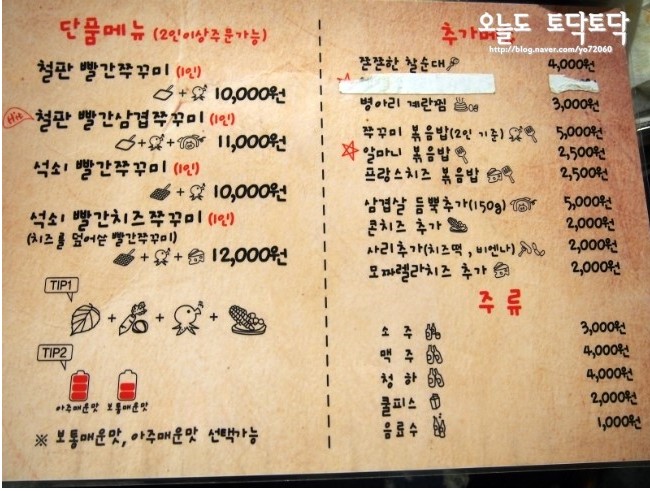 단품메뉴 (2인이상주문가능)
철판 빨간쭈꾸미 (1인)
10,000원
Hit 철판 빨간삼겹쭈꾸미 (1인)
11,000원
석쇠 빨간쭈꾸미 (1인)
10,000원
석쇠 빨간치즈쭈꾸미 (1인)
(치즈를 덮어쓴 빨간쭈꾸미)
12,000원
TIP1
TIP2
아주매운맛 보통매운맛
※ 보통매운맛, 아주매운맛 선택가능
오늘도 토닥토닥
http://blog.naver.com/yo72060
추가메
쫀쫀한 찰순대 4,000원
병아리 계란찜 3,000원
쭈꾸미 볶음밥(2인 기준) 5,000원
알마니 볶음밥 2,500원
프랑스치즈 볶음밥 2,500원
삼겹살 듬뿍추가(150g) 5,000원
콘치즈 추가 2,000원
사리추가(치즈떡, 비엔나) 2,000원
모짜렐라치즈 추가 2,000원
주류
소주 3,000원
맥주 4,000원
청하 4,000원
쿨피스 2,000원
음료수 1,000원